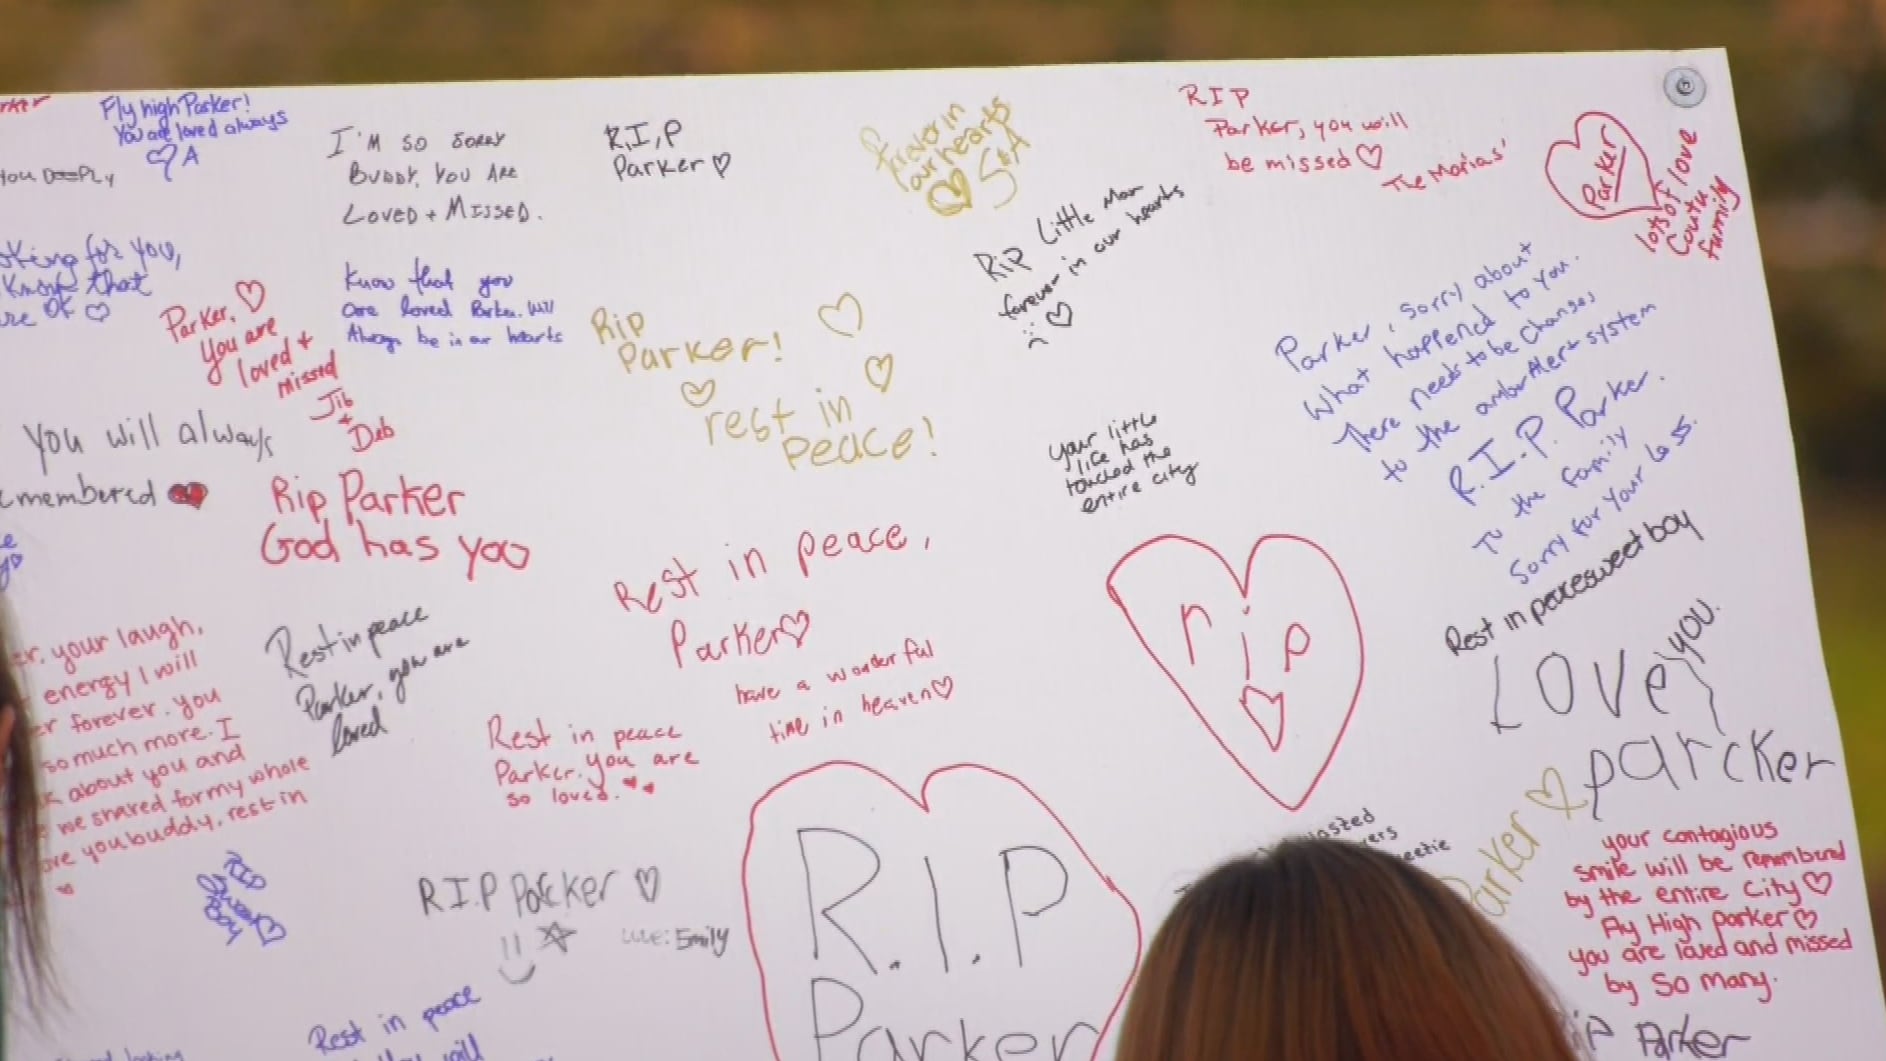 Fly high Parker!
You are loved always
A
I'M SO SORRY
BUDDY. YOU ARE
LOVED + MISSED.
R.I,P
Parker
forever in
our hearts
S&A
RIP
Parker, you will
be missed
The Marias'
Parker
lots of love
Coutu
family
you
for you,
know that
OK
Parker,
you are
loved +
missed
Jib
+
Deb
Know that you
are loved Parker. Will
Always be in our hearts
Rip
Parker!
rest in
peace!
Rip Little Man
forever in our hearts
Parker, sorry about
what happened to you.
There needs to be changes
to the amber Alert system
R.I.P. Parker.
To the family
Sorry for your loss.
you will always
membered
your little
life has
touched the
entire city
Rip Parker
God has you
Rest in peace,
Parker
have a wonderful
time in heaven
rip
Rest in peace sweet boy
Love you
parcker
your laugh,
energy I will
er forever. you
so much more. I
about you and
we shared for my whole
you buddy, rest in
Rest in peace
Parker, you are
loved
Rest in peace
Parker. you are
so loved.
R.I.P
Parker
Parker
your contagious
smile will be remembered
by the entire City
Fly High parker
you are loved and missed
by so many.
R.I.P Parcker
Emily
Rest in peace
will
Parker